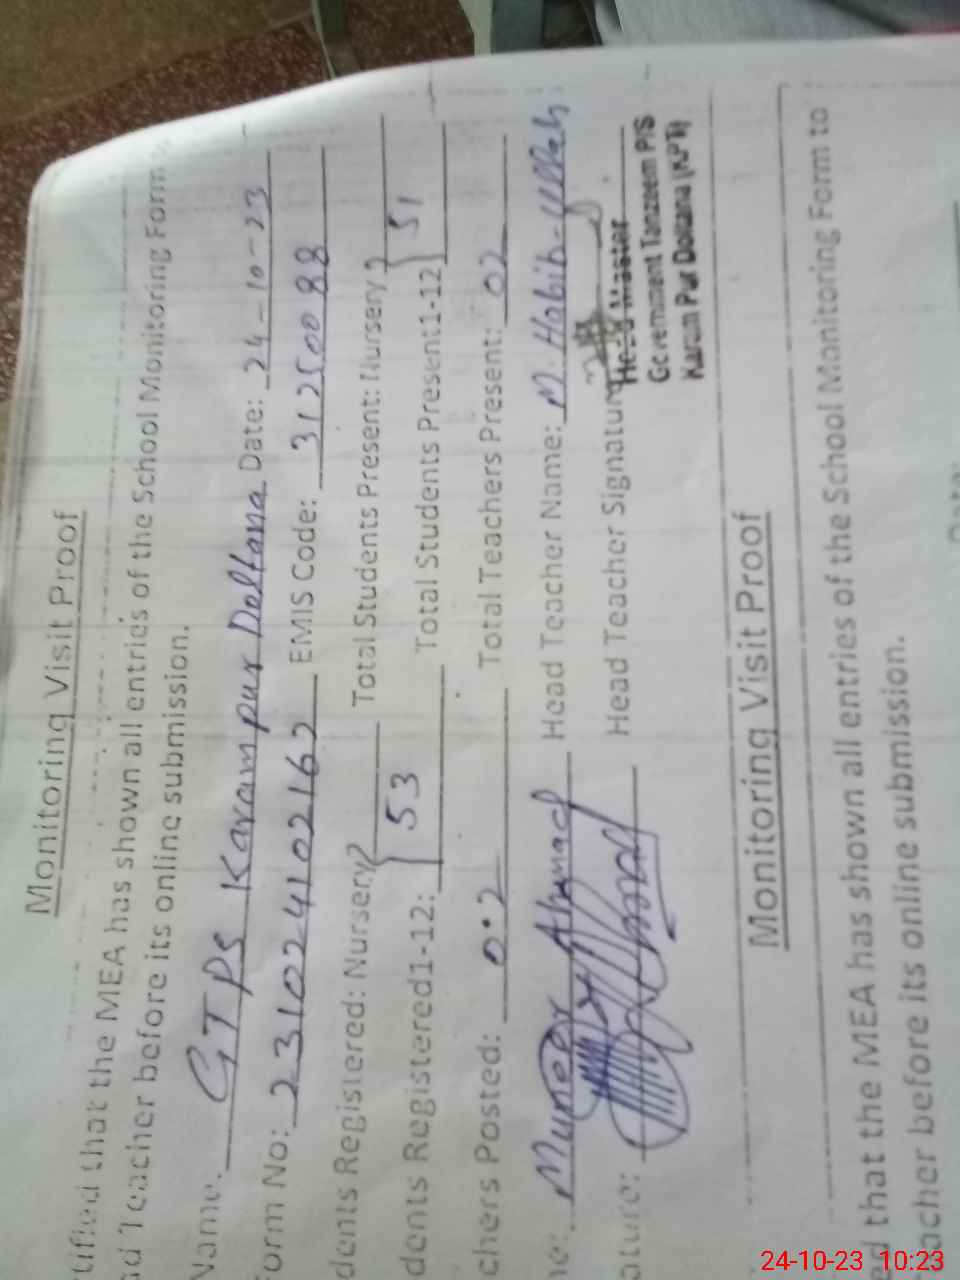 Monitoring Visit Proof
that the MEA has shown all entries of the School Monitoring Form
Teacher before its online submission.
Name: GTPS Karam pur Doltana Date: 24-10-23
Form No: 23102410216 EMIS Code: 31250088
dents Registered: Nursery Total Students Present: Nursery
53 51
dents Registered1-12: Total Students Present1-12
chers Posted: 02 Total Teachers Present: 02
ne: Muneer Ahmad Head Teacher Name: M. Habib-Ullah
ature: Head Teacher Signature
Head Master
Government Tanzeem P/S
Karam Pur Doltana
Monitoring Visit Proof
ed that the MEA has shown all entries of the School Monitoring Form to
acher before its online submission.
24-10-23 10:23